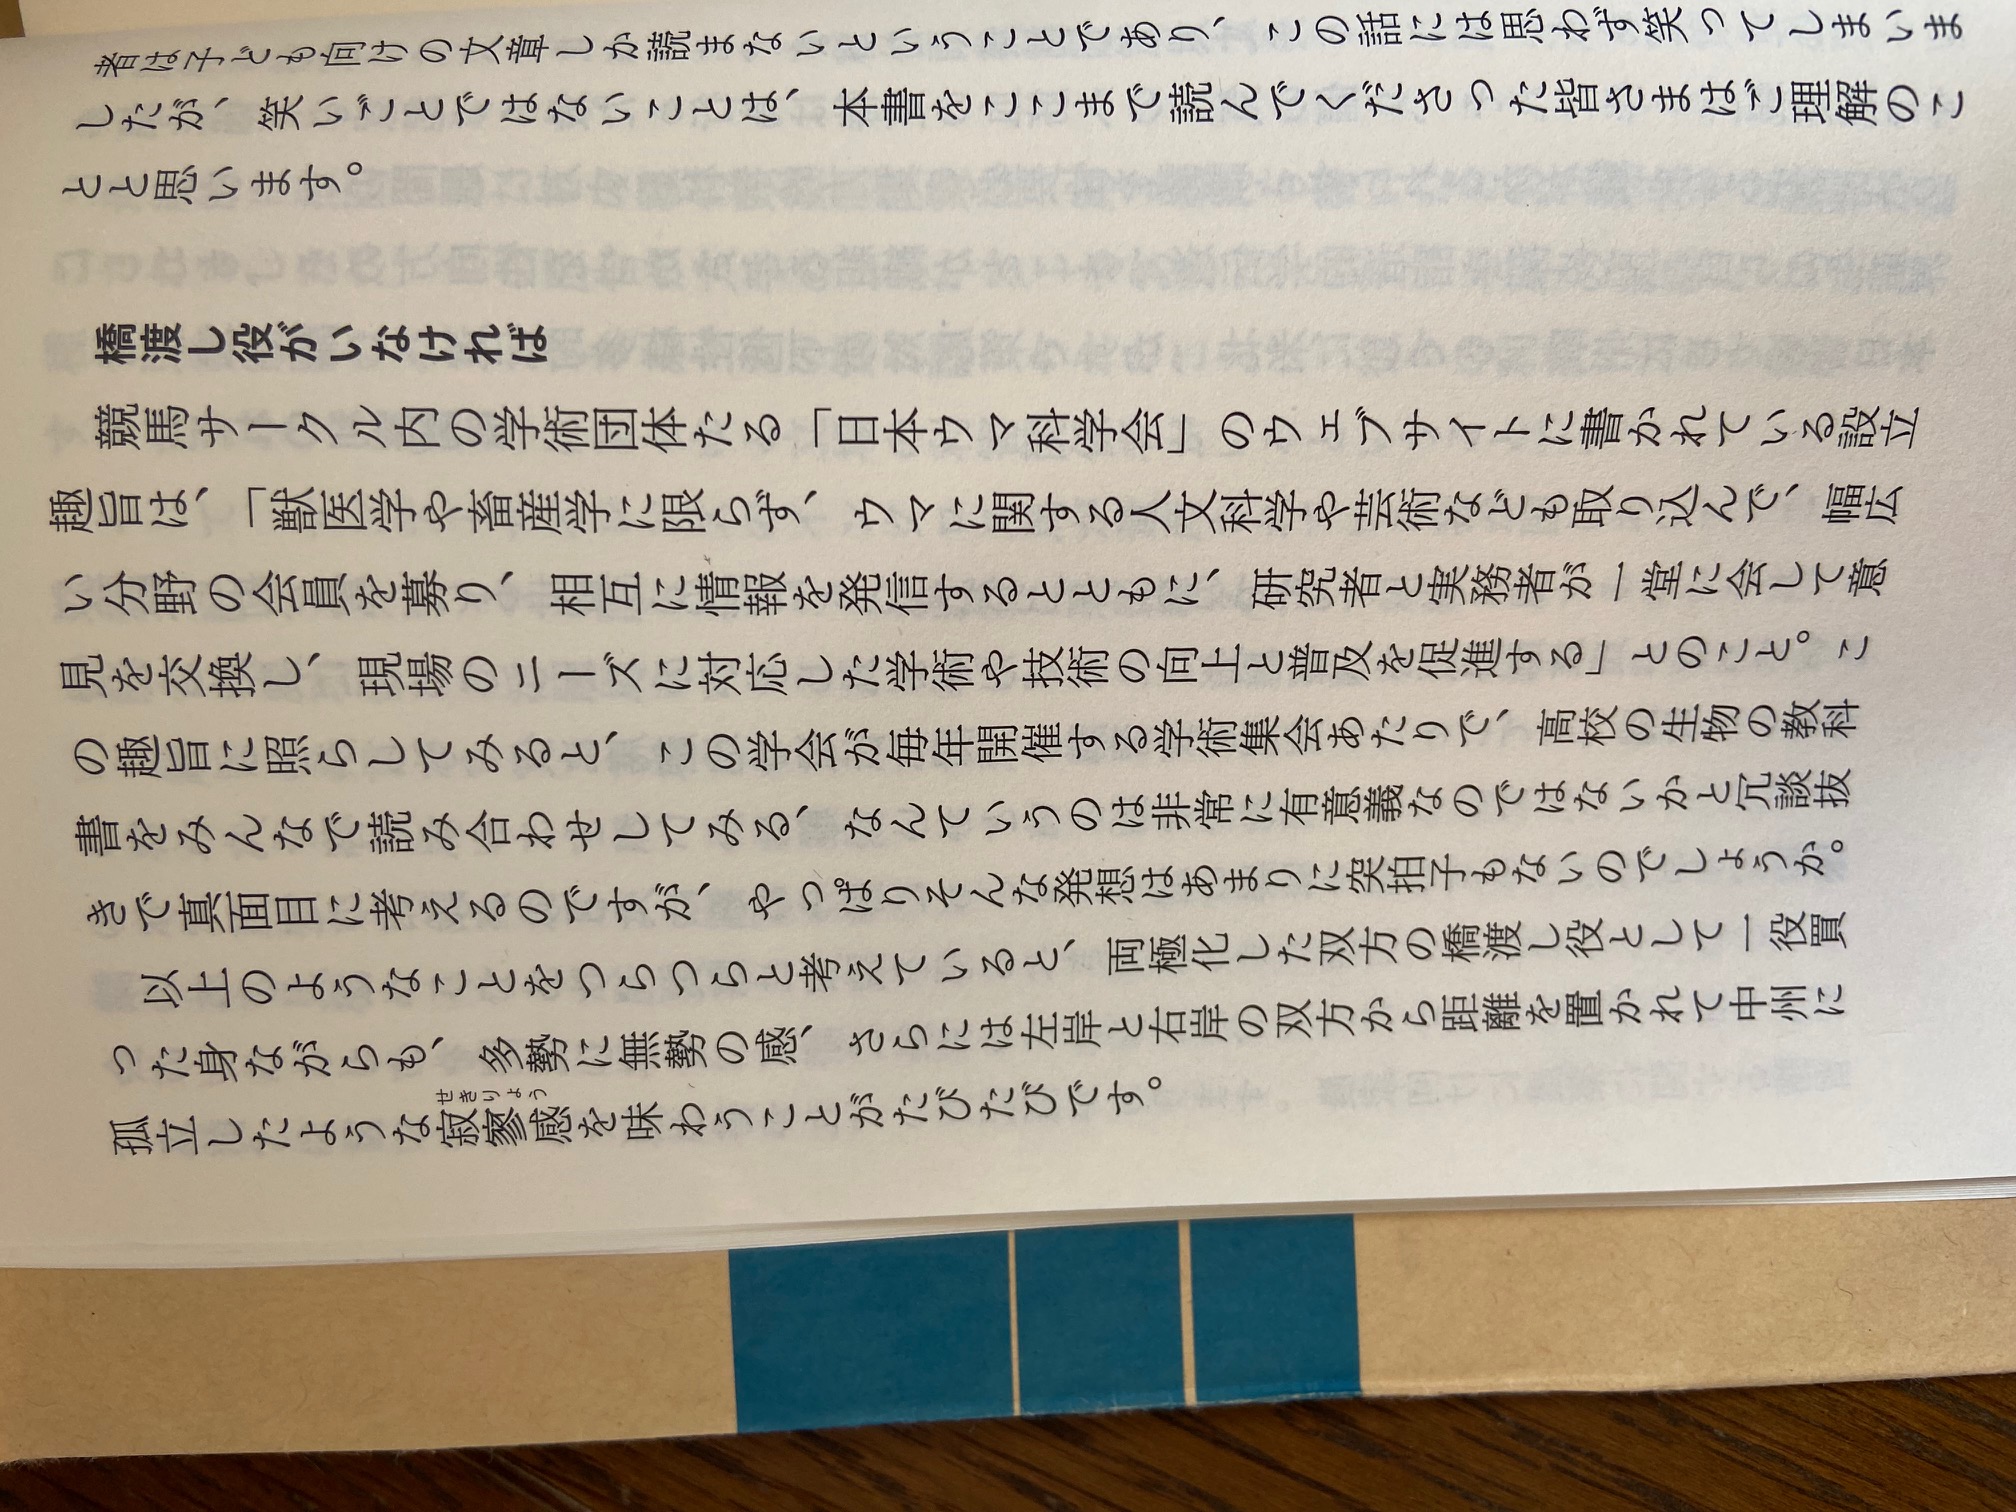 者は子ども向けの文章しか読まないということであり、この話には思わず笑ってしまいま
したが、笑いごとではないことは、本書をここまで読んでくださった皆さまはご理解のこ
とと思います。
橋渡し役がいなければ
競馬サークル内の学術団体たる「日本ウマ科学会」のウェブサイトに書かれている設立
趣旨は、「獣医学や畜産学に限らず、ウマに関する人文科学や芸術なども取り込んで、幅広
い分野の会員を募り、相互に情報を発信するとともに、研究者と実務者が一堂に会して意
見を交換し、現場のニーズに対応した学術や技術の向上と普及を促進する」とのこと。こ
の趣旨に照らしてみると、この学会が毎年開催する学術集会あたりで、高校の生物の教科
書をみんなで読み合わせしてみる、なんていうのは非常に有意義なのではないかと冗談抜
きで真面目に考えるのですが、やっぱりそんな発想はあまりに突拍子もないのでしょうか。
以上のようなことをつらつらと考えていると、両極化した双方の橋渡し役として一役買
った身ながらも、多勢に無勢の感、さらには左岸と右岸の双方から距離を置かれて中州に
孤立したような寂寥感を味わうことがたびたびです。
せきりょう